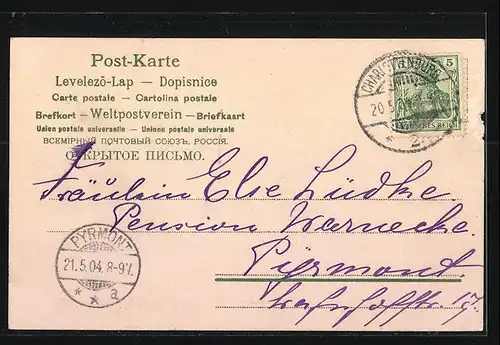 Post-Karte
Levelező-Lap — Dopisnice
Carte postale — Cartolina postale
Brefkort — Weltpostverein — Briefkaart
Union postale universelle — Unione postale universale
ВСЕМІРНЫЙ ПОЧТОВЫЙ СОЮЗЪ. РОССІЯ.
ОТКРЫТОЕ ПИСЬМО.
5
DEUTSCHES REICH
CHARLOTTENBURG
20.5
* 2
Fräulein Else Lüdke
Pension Warnecke
Pyrmont
Bahnhofstr. 17
PYRMONT
21.5.04. 8-9V.
* * a